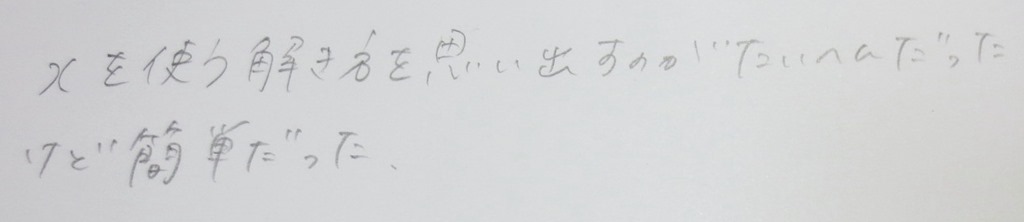 xを使う解き方を思い出すのがたいへんだった
けど簡単だった、